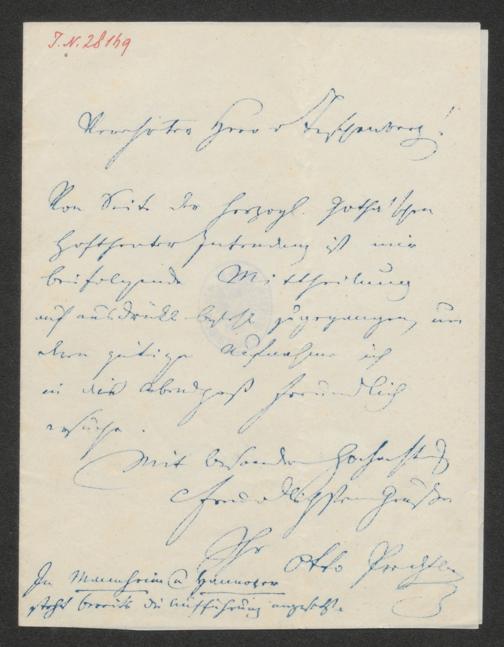 I.N. 28149
Verehrter Herr v Teschenberg!
Von Seite der herzogl. Gotha'schen
Hoftheater Intendanz ist mir
beifolgende Mittheilung
auf ausdrückl. zugegangen, um
deren gütige Aufnahme ich
in die Abendpost freundlich
ersuche.
Mit besonderer Hochacht
freundlichsten Grüßen
Ihr Otto Prechtler
In Mannheim u Hannover
steht bereits die Aufführung angesetzt.